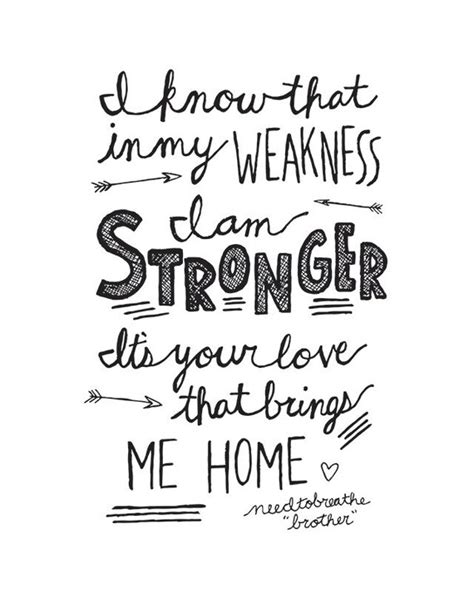 I know that
in my WEAKNESS
I am
STRONGER
It's your love
that brings
ME HOME
needtobreathe
"brother"